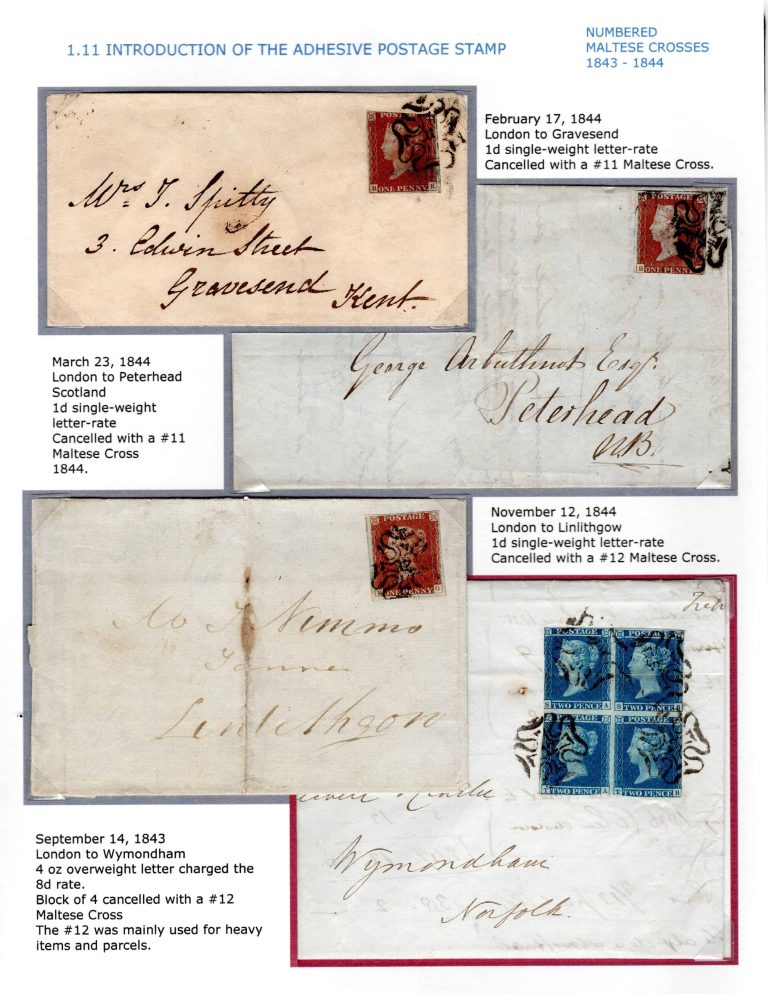 1.11 INTRODUCTION OF THE ADHESIVE POSTAGE STAMP
NUMBERED
MALTESE CROSSES
1843 - 1844
February 17, 1844
London to Gravesend
1d single-weight letter-rate
Cancelled with a #11 Maltese Cross.
ONE PENNY
Mrs J. Spitty
3. Edwin Street
Gravesend Kent.
POSTAGE
ONE PENNY
George Arbuthnot Esqr.
Peterhead
N.B.
March 23, 1844
London to Peterhead
Scotland
1d single-weight
letter-rate
Cancelled with a #11
Maltese Cross
1844.
November 12, 1844
London to Linlithgow
1d single-weight letter-rate
Cancelled with a #12 Maltese Cross.
POSTAGE
ONE PENNY
Nimmo
Tanner
Linlithgow
POSTAGE POSTAGE
S TWO PENCE A S TWO PENCE B
POSTAGE POSTAGE
T TWO PENCE A T TWO PENCE B
Wymondham
Norfolk.
September 14, 1843
London to Wymondham
4 oz overweight letter charged the
8d rate.
Block of 4 cancelled with a #12
Maltese Cross
The #12 was mainly used for heavy
items and parcels.